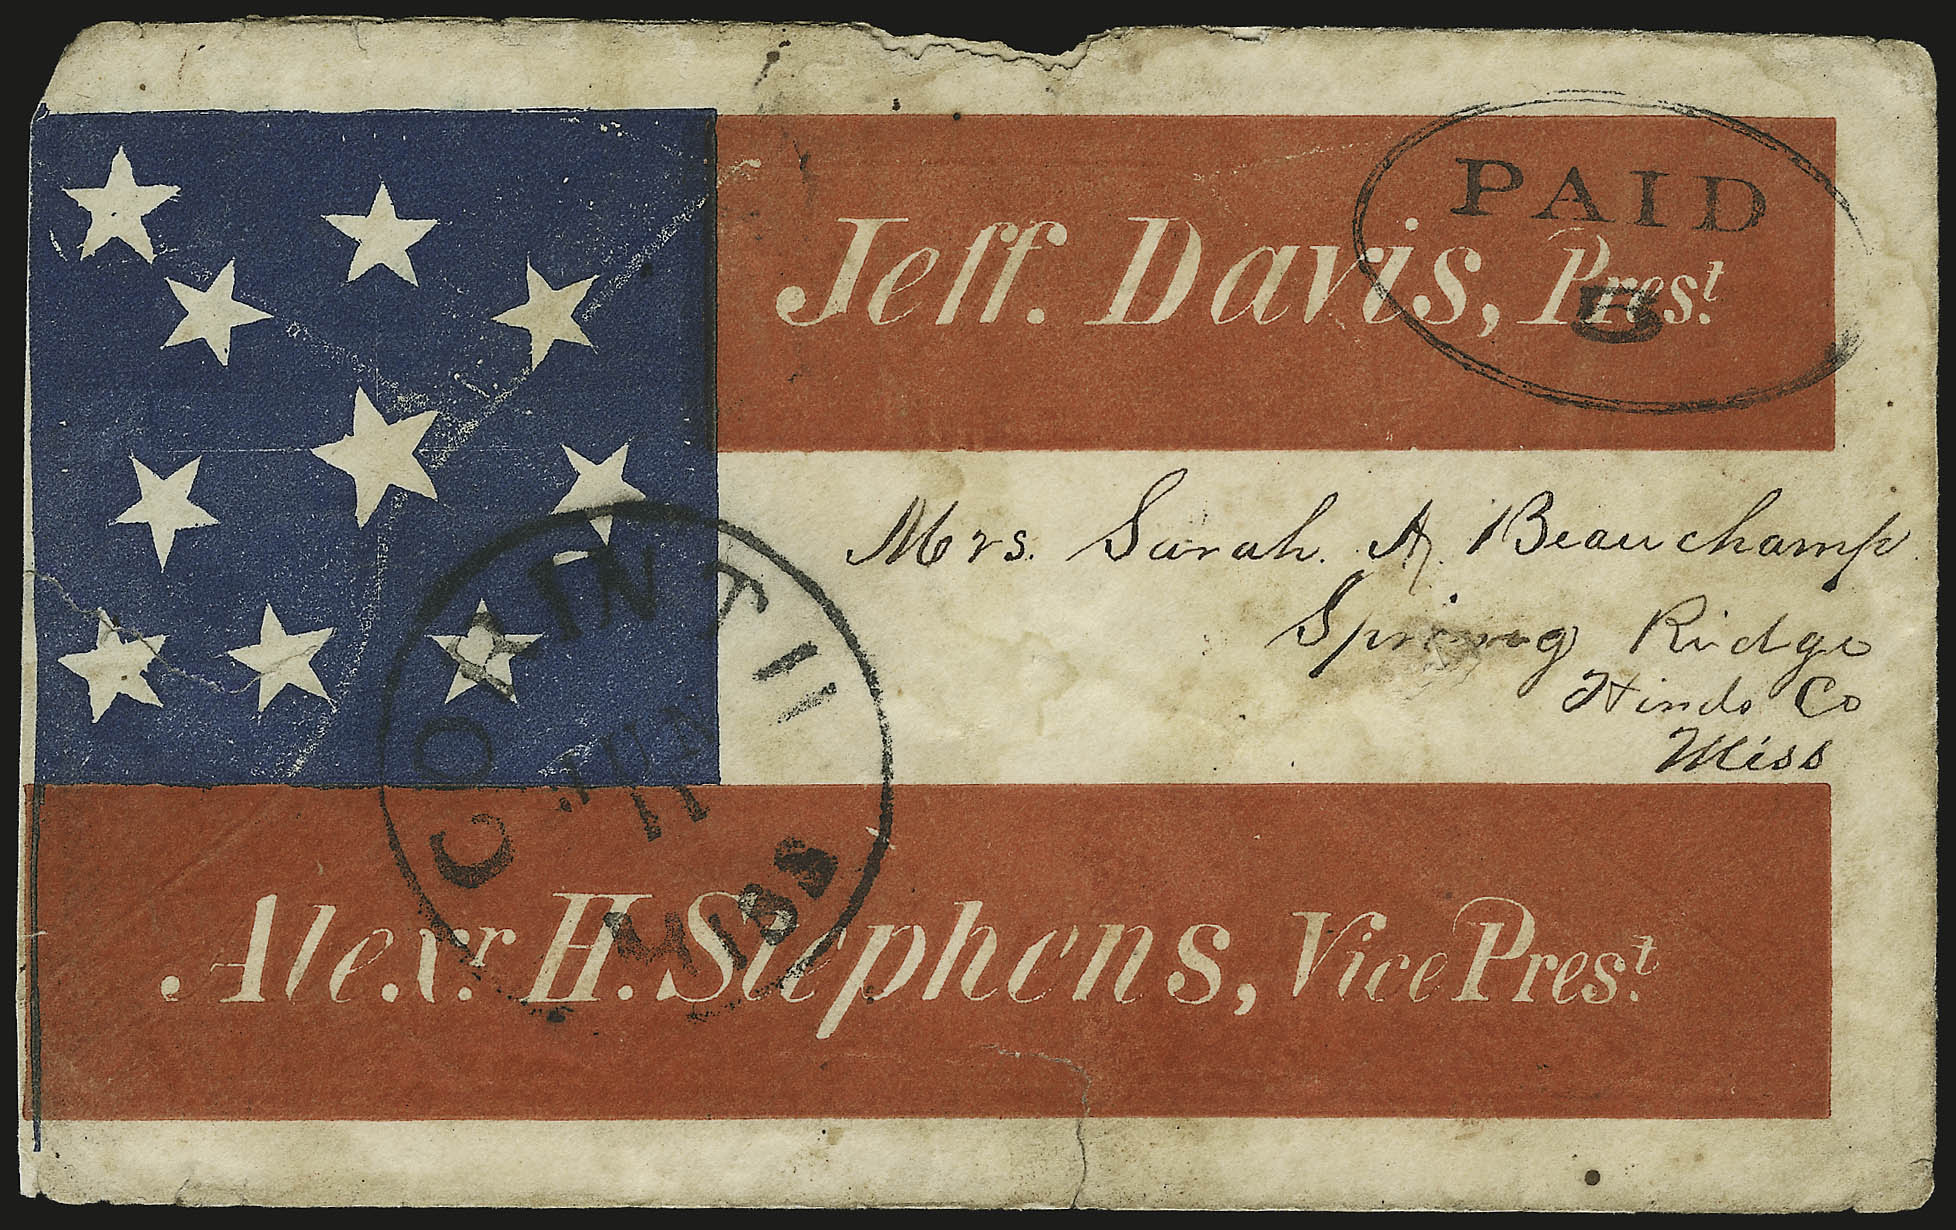 Jeff. Davis, Prest.
PAID
5
Mrs. Sarah. A. Beauchamp
Spring Ridge
Hinds Co
Miss
CORINTH
JUN
11
MISS
Alexr. H. Stephens, Vice Prest.